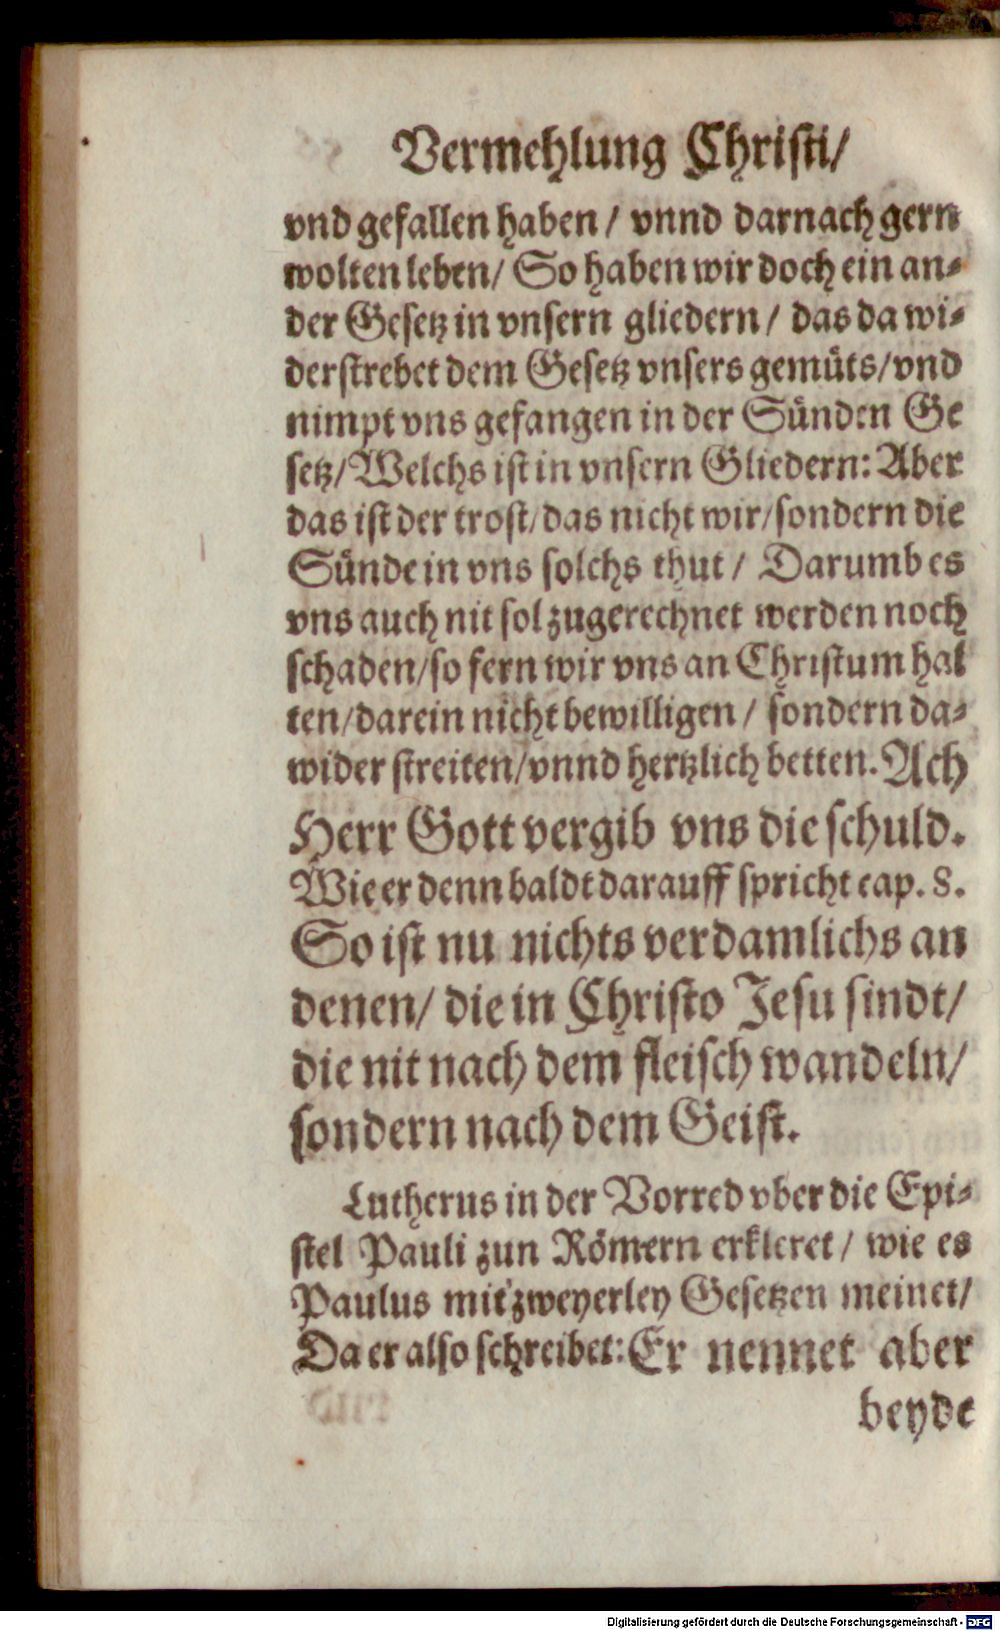 Vermehlung Christi/
vnd gefallen haben / vnnd darnach gern
wolten leben/ So haben wir doch ein an-
der Gesetz in vnsern gliedern / das da wi-
derstrebet dem Gesetz vnsers gemüts/vnd
nimpt vns gefangen in der Sünden Ge
setz/Welchs ist in vnsern Gliedern: Aber
das ist der trost/das nicht wir/sondern die
Sünde in vns solchs thut / Darumb es
vns auch nit sol zugerechnet werden noch
schaden/so fern wir vns an Christum hal
ten/darein nicht bewilligen / sondern da-
wider streiten/vnnd hertzlich betten. Ach
Herr Gott vergib vns die schuld.
Wie er denn baldt darauff spricht cap. 8.
So ist nu nichts verdamlichs an
denen/ die in Christo Jesu sindt/
die nit nach dem fleisch wandeln/
sondern nach dem Geist.
Lutherus in der Vorred vber die Epi-
stel Pauli zun Römern erkleret / wie es
Paulus mit zweyerley Gesetzen meinet/
Da er also schreibet: Er nennet aber
beyde
Digitalisierung gefördert durch die Deutsche Forschungsgemeinschaft - DFG